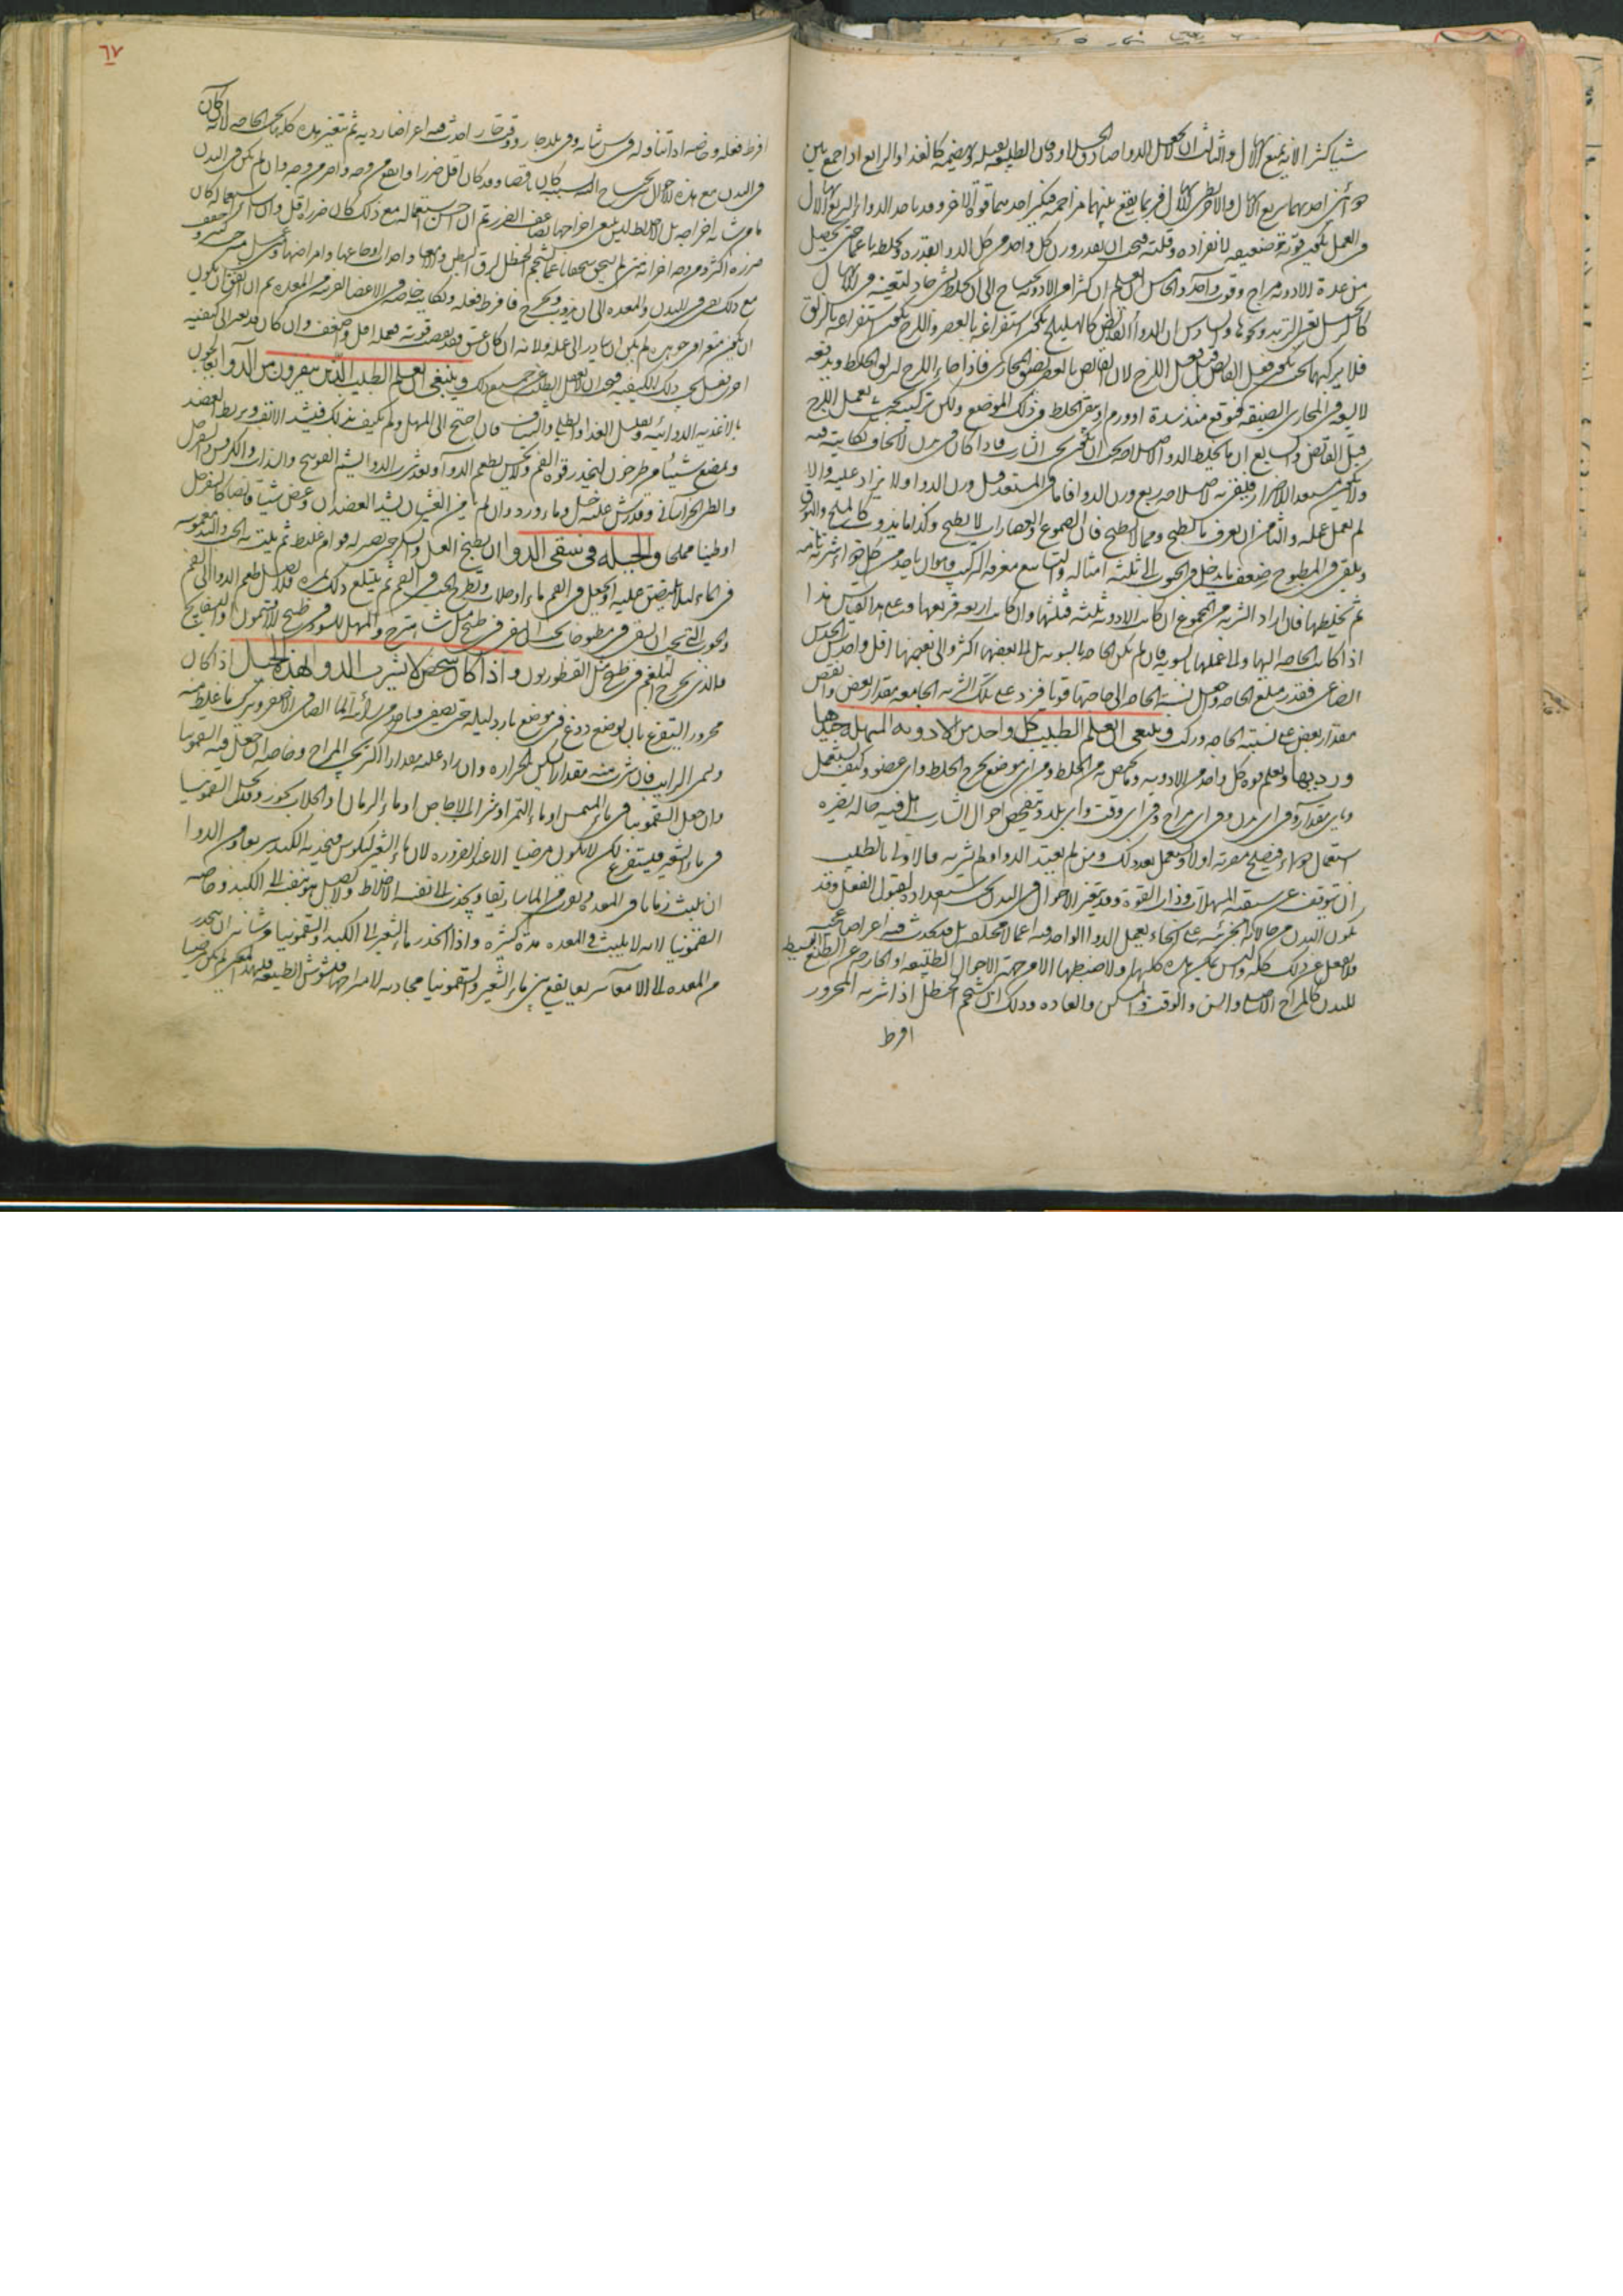 شيا كثيرا لانه يمنع الاسهال والثالث ان لا يجعل الدوا صادق الحلاوة فان الطبيعة تهضمه كالغذا والرابع اذا جمع بين
دوائين احدهما سريع الاسهال والاخر بطئ الاسهال فربما يقع بينهما مزاحمة فيكسر احدهما قوة الاخر وقد ياخذ الدوا السريع الاسهال
في العمل فتكون قوته ضعيفة لانفراده وقلته فيجب ان يقدر وزن كل واحد من كل الدوا بقدره ويخلط ناعما حتى يحصل
من عدة الادوية مزاج وقوة واحدة والخامس ان يعلم ان كثيرا من الادوية يحتاج الى ان يخلط بشئ حاد ليعينه في الاسهال
كالزنجبيل مع التربد ونحوها والسادس ان الدوا القابض كالهليلج يكون استفراغه بالعصر واللزج يكون استفراغه بالزلق
فلا يركبهما بحيث يكون فعل القابض قبل فعل اللزج لان القابض بالعصر يضيق المجاري فاذا جاء اللزج ليزلق الخلط ويدفعه
المجاري الضيقة فيتوقع منه سدة او ورم او يبقى الخلط في ذلك الموضع ولكن تركيبه بحيث يعمل اللزج
قبل القابض والسابع ان ما يخلط بالدوا لاصلاحه يجب ان يكون بحسب الشارب فاذا كان في بدن لا يخاف نكايته فيه
ولا يكون مستعدا للاضرار فليقرن به لاصلاحه ربع وزن الدوا فاما في المستعد قبل وزن الدوا ولا يزاد عليه والا
لم يعمل عمله والثامن ان يعرف ما يطبخ ومما لا يطبخ فان الصموغ والعصارات لا يطبخ وكذا ما يذوب كالملح
ويلقى في المطبوخ ضعف ما يدخل في الحبوب الى ثلثة امثاله والتاسع معرفة التركيب وهو ان ياخذ من كل دواء شربة تامة
ثم يخلطها فان اراد الشربة من المجموع ان كانت الادوية ثلثة فثلثها وان كانت اربعة فربعها وعلى هذا القياس هذا
اذا كانت الحاجة اليها والى عملها بالسوية فان لم يكن الحاجة بالسوية بل الى بعضها اكثر والى بعضها اقل واحدس الحدس
الصناعي فقدر مبلغ الحاجة واجعل نسبة الحاجة الى حاجتها قوتا فزد على تلك الشربة الجامعة مقدار بعض وانقص
مقدار بعض على نسبة الحاجة وركب وينبغي ان يعلم الطبيب كل واحد من الادوية المسهلة جيدها
ورديها ويعلم قوة كل واحد من الادوية وما يختص به من الخلط ومن اي موضع يخرج الخلط واي عضو وكيف يستعمل
وباي مقدار وفي اي بدن وفي اي مزاج وفي اي وقت واي بلد ويتفحص احوال الشارب هل فيه حالة يضره
استعمال دواء فيصلح مضرته اولا ويستعمل بعد ذلك ومن لم يعتد الدوا ولم يشربه فالاولى بالطبيب
ان يتوقف عن سقيه المسهلات وذات القوة وقد يتغير الاحوال في البدن بحسب استعداده لقبول الفعل وقد
يكون البدن من حالاته الجزئية على انحاء يعمل الدوا الواحد فيه اعمالا مختلفة بل قد يحدث فيه اعراض عجيبة
فلا يغفل عن ذلك كله وليس يمكن هذه كلها ولا ضبطها الا من جهة الاحوال الطبيعية او الخارجة عن الطبع المحيط
للبدن كالمزاج الاصلي والسن والوقت والمسكن والعادة وذلك ان شحم الحنظل اذا شربه المحرور
افرط
٦٧
افرط فعله وخاصة اذا تناوله في سن شاب وفي بلد حار ووقت حار احدث فيه اعراضا ردية ثم يتغير هذه كلها بحسب الحاجة لانه ان كان
في البدن مع هذه الاحوال يحتاج الى كان ناقصا وقد كان اقل ضررا وانفع من وجه واضر من وجه وان لم يكن في البدن
ما من شانه اخراجه بل اخلاط ليس ينبغي اخراجها تضاعف الضرر ثم ان احسن استعماله مع ذلك كان ضرره اقل وان اسئ استعماله كان
ضرره اكثر ومن وجه اخر انه متى لم يسحق سحقا ناعما كشحم الحنظل لزق بالبطن والامعاء واحدث اوجاعها وامراضها
مع ذلك بقى في البدن والمعدة الى ان يذوب ويخرج فافرط فعله ونكايته خاصة في الاعضا القريبة من المعدة ثم ان اتفق ان يكون
ان يكون متغير الجوهر لم يكن ان يبادر الى عمله ولانه ان كان عتق فقد نقصت قوته فعمله اقل واضعف وان كان قد تغير الى كيفية
اخرى فعل بحسب تلك الكيفية فيجب ان لا يغفل الطبيب عن جميع ذلك وينبغي ان يعلم الطبيب الذين ينفرون من الدوا يعالجون
بالاغذية الدوائية وتقليل الغذا والطلا والشياف فان احتيج الى المسهل ولم يكيف بذلك فليشد الانف ويربط العضد
ويمضغ شيئا من طرخون ليخدر قوة الفم ولا يحس بطعم الدوا او يؤثر رائحة الدوا ليشم القوتنج والسذاب والكرفس والسفرجل
والطين الخراساني وقد رش عليه خل وماء ورد وان لم يامن الغثيان يشد العضدان ويعض شيئا قابضا كالسفرجل
او طينا مملحا والحيلة في سقي الدوا ان يطبخ العسل والسكر حتى يصير له قوام غليظ ثم يلت به الحب والبندقة مغموسة
في الماء لئلا يلتصق حليه او يجعل في الفم ماء او جلاب ويطرح الحب في الفم ثم يبتلع ذلك بمرة فلا يصل طعم الدوا الى الفم
والحبوب التي يجب ان يسقى في مطبوخات يجب ان يسقى في طبيخ مثل شاهترج والمسهل للسودا في طبيخ الافتيمون والبسفايج
والذي يخرج البلغم في طبيخ مثل القنطوريون واذا كان شخص لا يشرب الدوا لهذه الحيل اذا كان
محرور التفرغ بان يوضع دوغ في موضع بارد ليلة حتى يصفي وياخذ من راسه الما الصافي الاصفر ويترك ما غلظ منه
ويسمى الرايب فان شرب منه مقدار الحرارة وان زاد عليه مقدارا اكثر المزاج وخاصة ان جعل فيه السقمونيا
وان جعل السقمونيا في ماء المشمس او ماء التمر او شراب الاجاص او ماء الرمان او الجلاب يجوز وقد يجعل السقمونيا
في ماء الشعير فيستفرغ لكن لا يكون مرضيا الا عند الضرورة لان ماء الشعير كيلوس فيجذبه الكبد سريعا ومن الدوا
ان يلبث زمانا في المعدة ويعود من الماساريقا ويجذب الى نفسه الاخلاط ولا يحصل هو بنفسه الى الكبد وخاصة
السقمونيا لانه لا يلبث في المعدة مدة كثيرة واذا انحدر ماء الشعير الى الكبد والسقمونيا من شانه ان ينحدر
من المعدة الى الامعا سريعا يقع بين ماء الشعير والسقمونيا مجاذبة لامتزاجهما فيشوش الطبيعة فلهذا المعنى لم يكن مرضيا